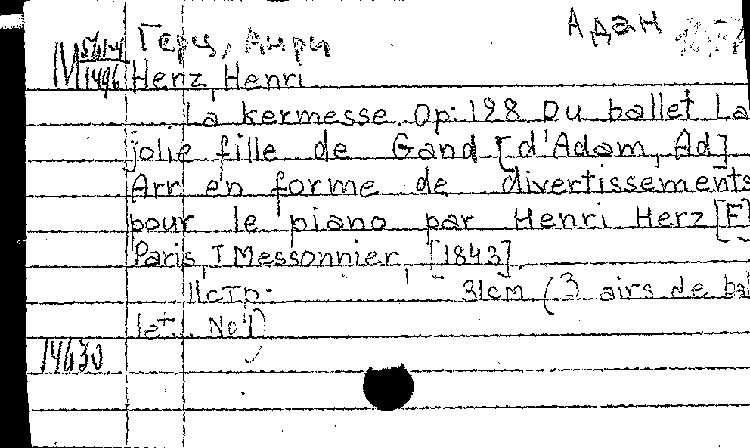 Адан
Герц, Анри
М 561-4
1496
Herz, Henri
La kermesse. Op. 128 Du ballet La
jolie fille de Gand [d'Adam, Ad]
Arr en forme de divertissements
pour le piano par Henri Herz [F]
Paris, I Messonnier, [1843].
11стр. 31cm (3 airs de bal
let. No1)
14630